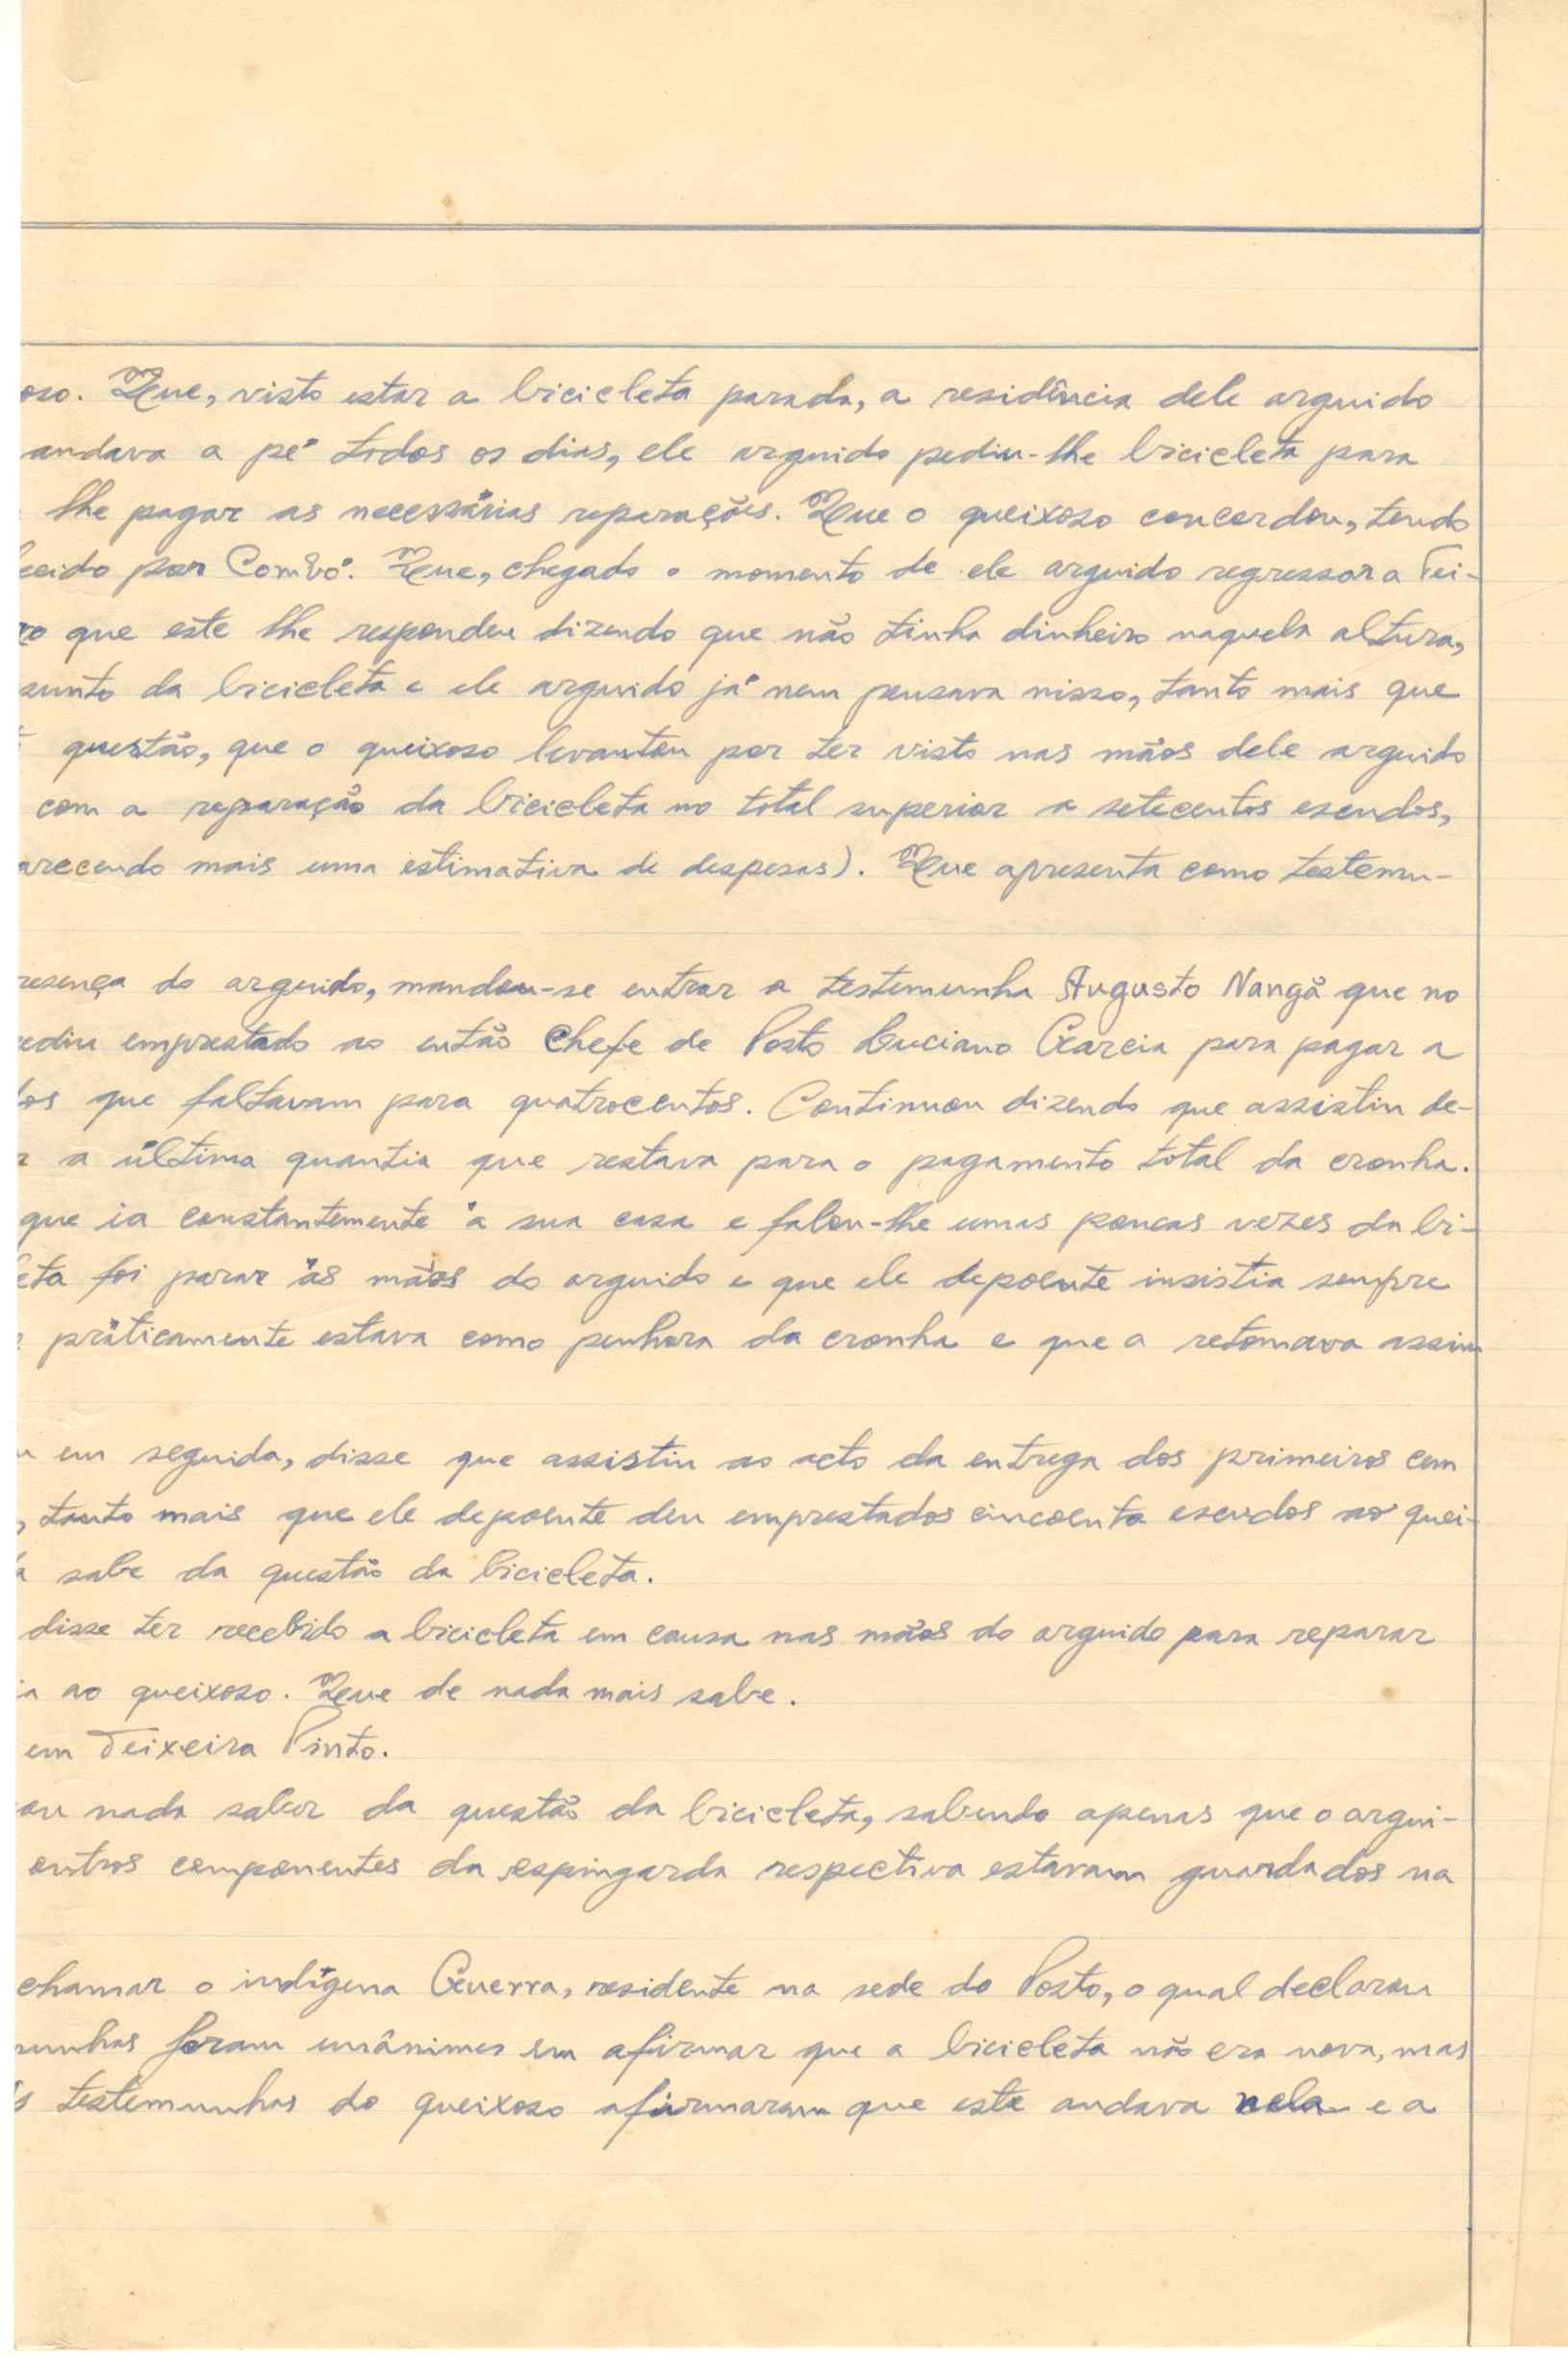 oso. Que, visto estar a bicicleta parada, a residência dele arguido
andava a pé todos os dias, ele arguido pediu-lhe bicicleta para
lhe pagar as necessárias reparações. Que o queixoso concordou, tendo
ecido por Combó. Que, chegado o momento de ele arguido regressar a Tei-
ro que este lhe respondeu dizendo que não tinha dinheiro naquela altura,
sunto da bicicleta e ele arguido já nem pensava nisso, tanto mais que
questão, que o queixoso levantou por ter visto nas mãos dele arguido
com a reparação da bicicleta no total superior a setecentos escudos,
arecendo mais uma estimativa de despesas). Que apresenta como testemu-
resença do arguido, mandou-se entrar a testemunha Augusto Nangã que no
ediu emprestado ao então Chefe de Posto Luciano Garcia para pagar a
dos que faltavam para quatrocentos. Continuou dizendo que assistiu de-
a última quantia que restava para o pagamento total da cronha.
que ia constantemente à sua casa e falou-lhe umas poucas vezes da bi-
eta foi parar às mãos do arguido e que ele depoente insistia sempre
práticamente estava como penhora da cronha e que a retomava assim
em seguida, disse que assistiu ao acto da entrega dos primeiros cem
, tanto mais que ele depoente deu emprestados cincoenta escudos ao quei-
sabe da questão da bicicleta.
disse ter recebido a bicicleta em causa nas mãos do arguido para reparar
ia ao queixoso. Que de nada mais sabe.
em Teixeira Pinto.
ou nada saber da questão da bicicleta, sabendo apenas que o argui-
outros componentes da espingarda respectiva estavam guardados na
chamar o indígena Guerra, residente na sede do Posto, o qual declarou
munhas foram unânimes em afirmar que a bicicleta não era nova, mas
s testemunhas do queixoso afirmaram que este andava nela e a